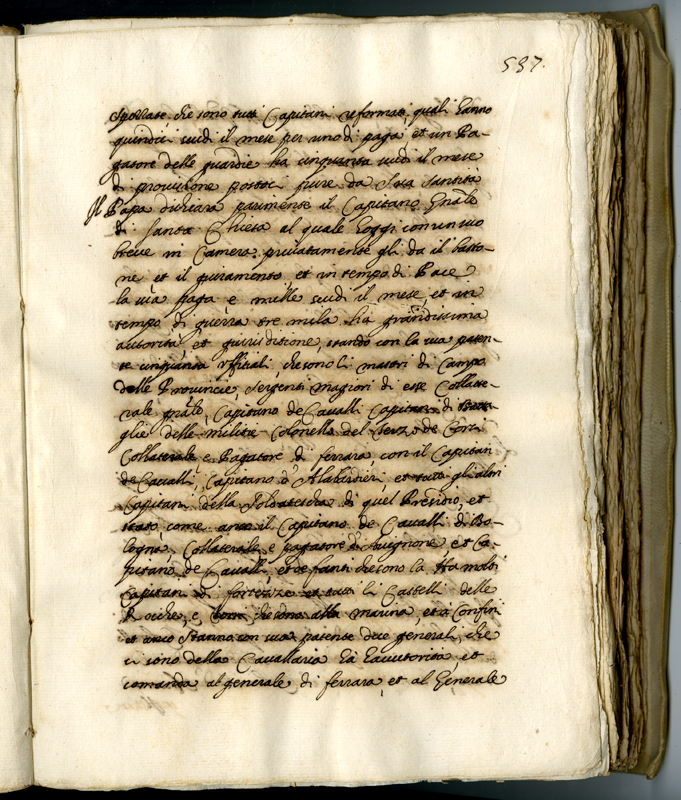 537.
Spezzate che sono tutti Capitani reformati, quali hanno
quindici scudi il mese per uno di paga et un Pa-
gatore delle guardie ha cinquanta scudi il mese
di provisione postoci pure da Sua Santità
Il Papa dichiara parimente il Capitano Gnãle
di Santa Chiesa al quale hoggi con un suo
breve in Camera privatamente gli da il basto-
ne et il giuramento et in tempo di Pace
la sua paga e mille scudi il mese, et in
tempo di guerra tre mila ha grandissima
autorità, et giurisditione, stando con la sua paten-
te cinquanta offitiali, che sono li mastri di Campo
delle Provincie, Sergenti magiori di esse Collate-
rale gnãle, Capitano de Cavalli Capitani di Batta-
glie delle militie Colonello del Terzo de Corsi
Collaterale e Pagatore di ferrara, con il Capitan
de Cavalli, Capitano d'Alabardieri et tutti gli altri
Capitani della Soldatesca di quel Presidio, et
stato, come anco il Capitano de Cavalli di Bo-
logna, Collaterale, e pagatore d'Avignone, et Ca-
pitano de Cavalli, et de fanti che sono la
Capitani di fortezze et tutti li Castelli delle
Rocche, e, Torri, che sono alla marina, et a Confini
et anco stanno con sua patente due generali, che
ci sono della Cavallaria ha l'autorità, et
comanda al generale di ferrara, et al Generale